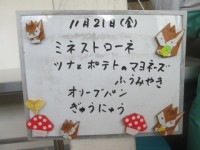 11月21日(金)
ミネストローネ
ツナとポテトのマヨネーズ
ふうみやき
オリーブパン
ぎゅうにゅう